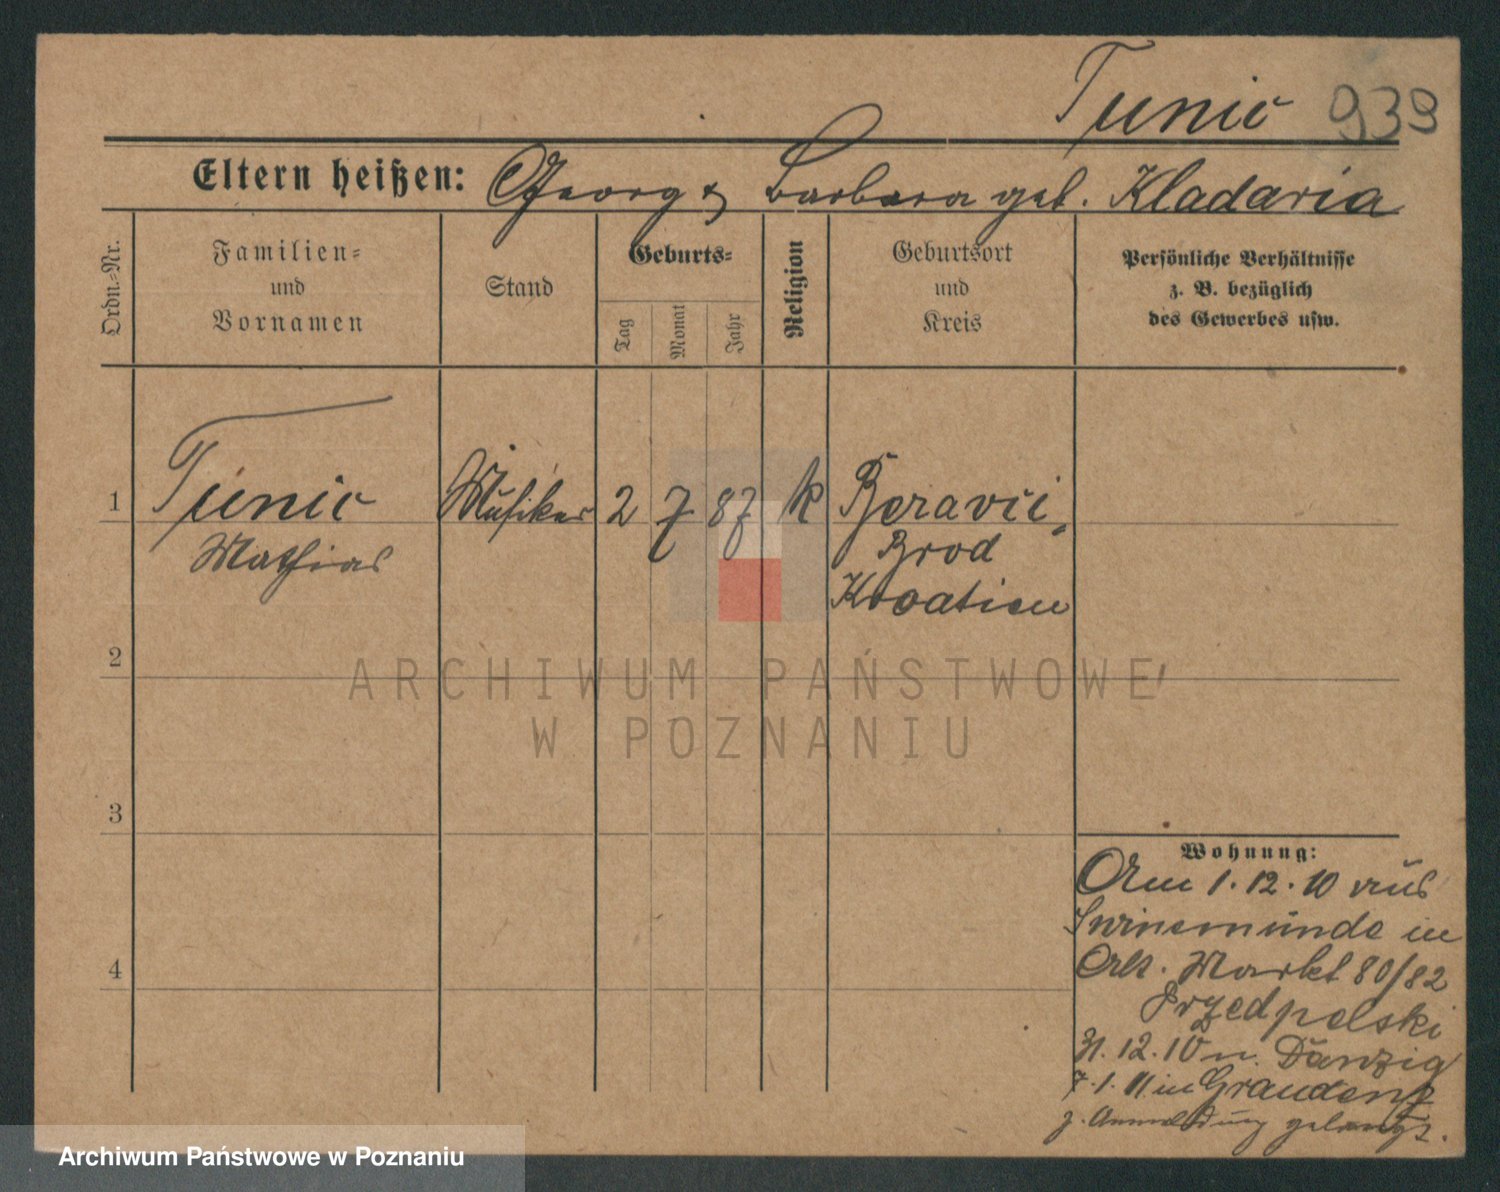 Tunic 939
Eltern heißen: Georg & Barbara geb. Kladaria
Ordn.-Nr.
Familien-
und
Vornamen
Stand
Geburts-
Tag
Monat
Jahr
Religion
Geburtsort
und
Kreis
Persönliche Verhältnisse
z. B. bezüglich
des Gewerbes usw.
1 Tunic Musiker 2 7 87 k Beravci,
Mathias Brod
Kroatien
2
ARCHIWUM PAŃSTWOWE
W POZNANIU
3
Wohnung:
Am 1.12.10 aus
Swinemünde in
4
Alt. Markt 80/82
Przedpelski
31.12.10 n. Danzig
7.1.11 in Graudenz
z. Anmeldung gelangt.
Archiwum Państwowe w Poznaniu